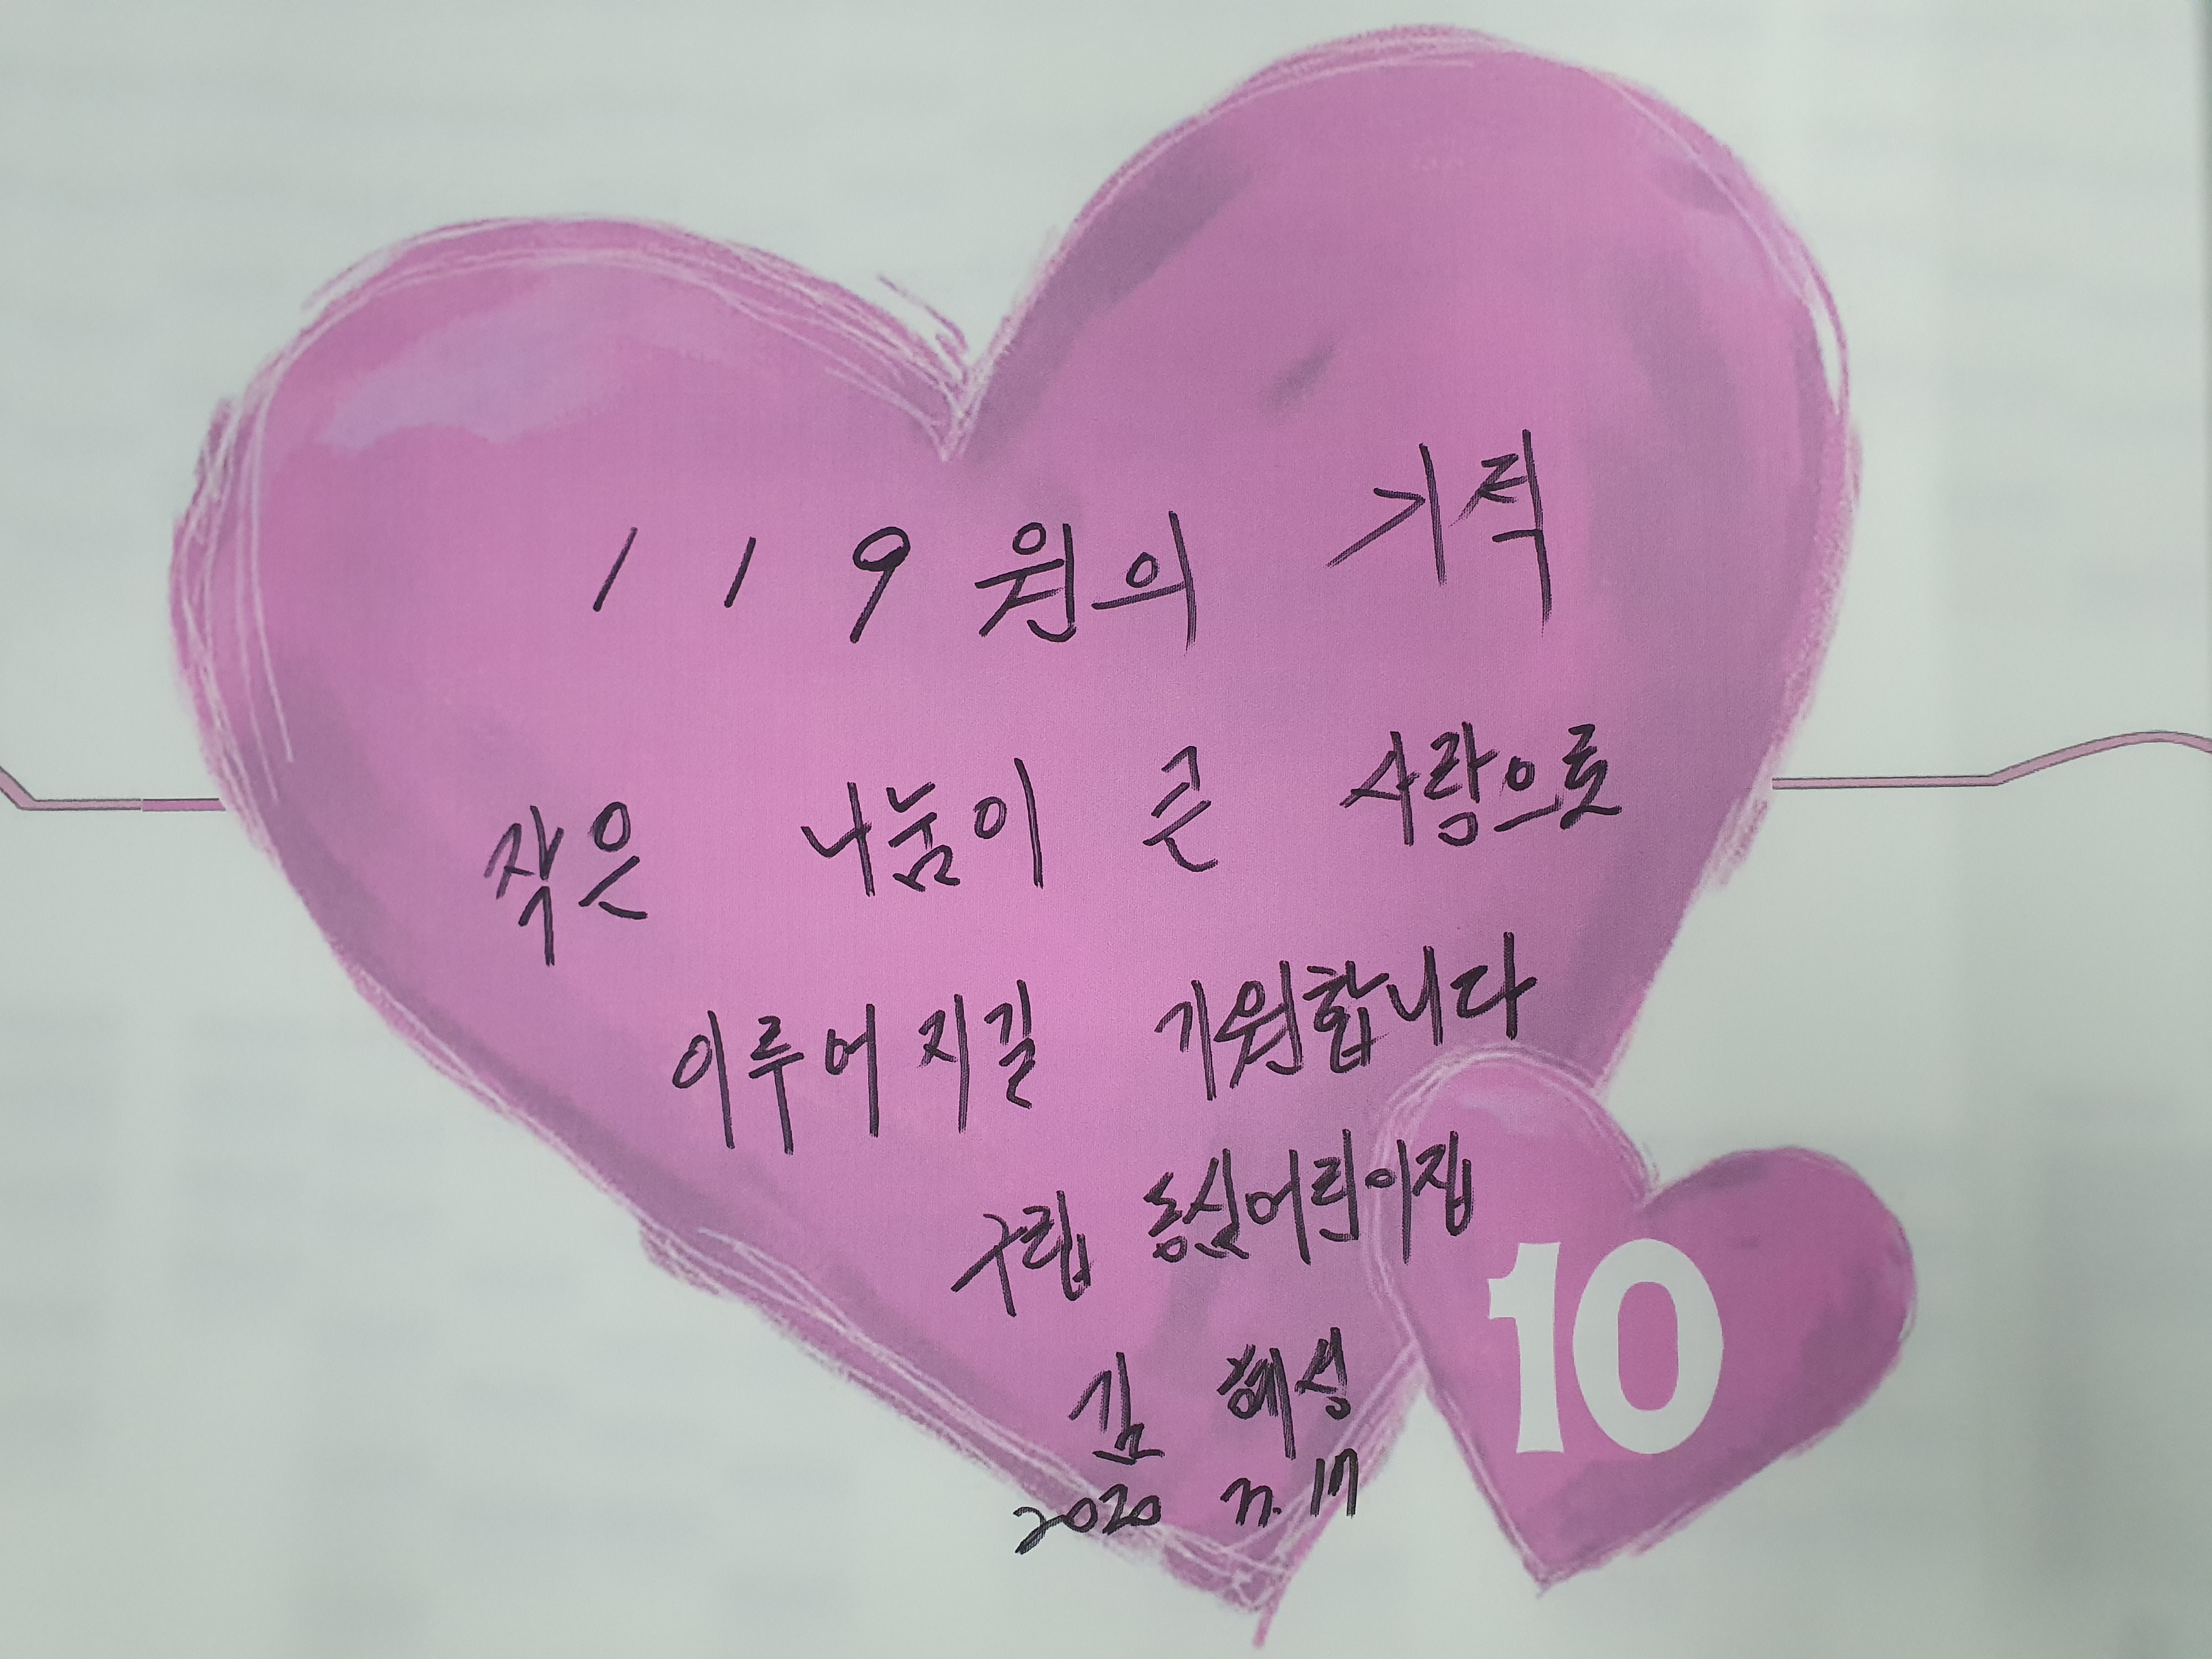 119원의 기적
작은 나눔이 큰 사랑으로
이루어지길 기원합니다
구립 동심어린이집
김 혜성
2020 . 17
10